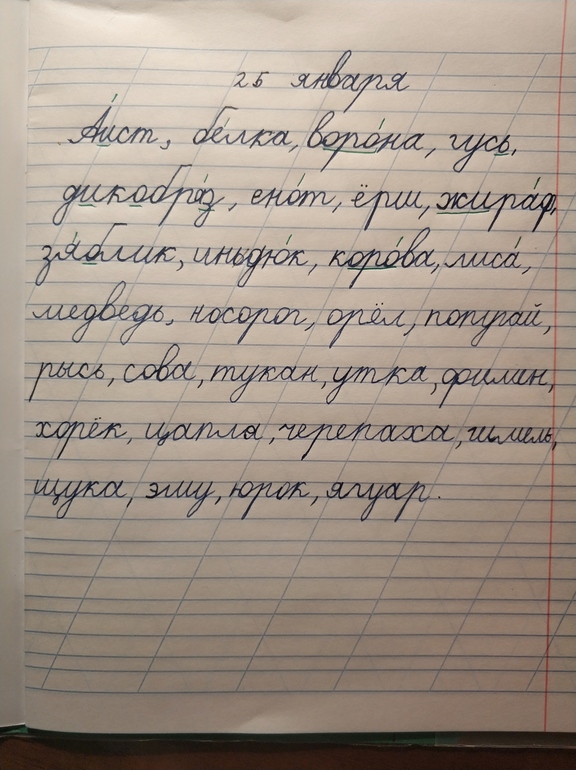 25 января
А́ист, бе́лка, воро́на, гусь,
дикобра́з, ено́т, ёрш, жира́ф,
зя́блик, иньдю́к, коро́ва, лиса́,
медведь, носорог, орёл, попугай,
рысь, сова, тукан, утка, филин,
хорёк, цапля, черепаха, шмель,
щука, эму, юрок, ягуар.